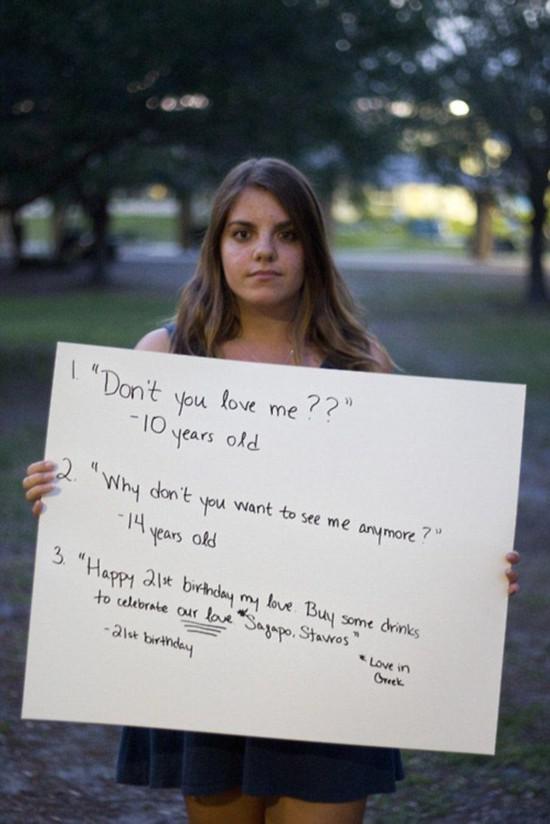 1. "Don't you love me??"
-10 years old
2. "Why don't you want to see me anymore?"
-14 years old
3. "Happy 21st birthday my love. Buy some drinks
to celebrate our love *Sagapo, Stavros"
-21st birthday
*Love in
Greek